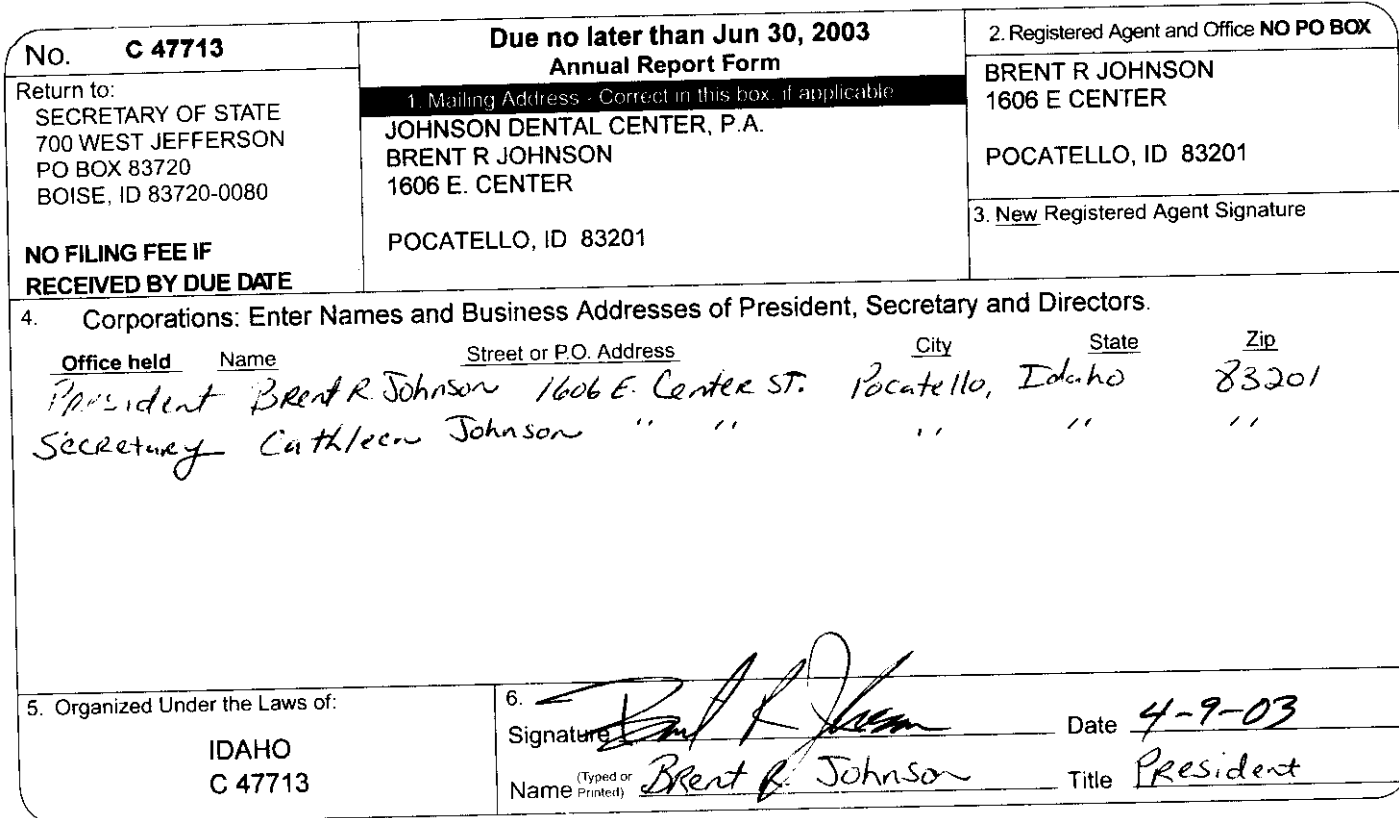 No. C 47713
Return to:
SECRETARY OF STATE
700 WEST JEFFERSON
PO BOX 83720
BOISE, ID 83720-0080
NO FILING FEE IF
RECEIVED BY DUE DATE
Due no later than Jun 30, 2003
Annual Report Form
1. Mailing Address - Correct in this box, if applicable
JOHNSON DENTAL CENTER, P.A.
BRENT R JOHNSON
1606 E. CENTER
POCATELLO, ID 83201
2. Registered Agent and Office NO PO BOX
BRENT R JOHNSON
1606 E CENTER
POCATELLO, ID 83201
3. New Registered Agent Signature
4. Corporations: Enter Names and Business Addresses of President, Secretary and Directors.
Office held Name Street or P.O. Address City State Zip
President Brent R. Johnson 1606 E. Center ST. Pocatello, Idaho 83201
Secretary Cathleen Johnson " " " " "
5. Organized Under the Laws of:
IDAHO
C 47713
6.
Signature Brent R Johnson Date 4-9-03
Name (Typed or Printed) Brent R. Johnson Title President